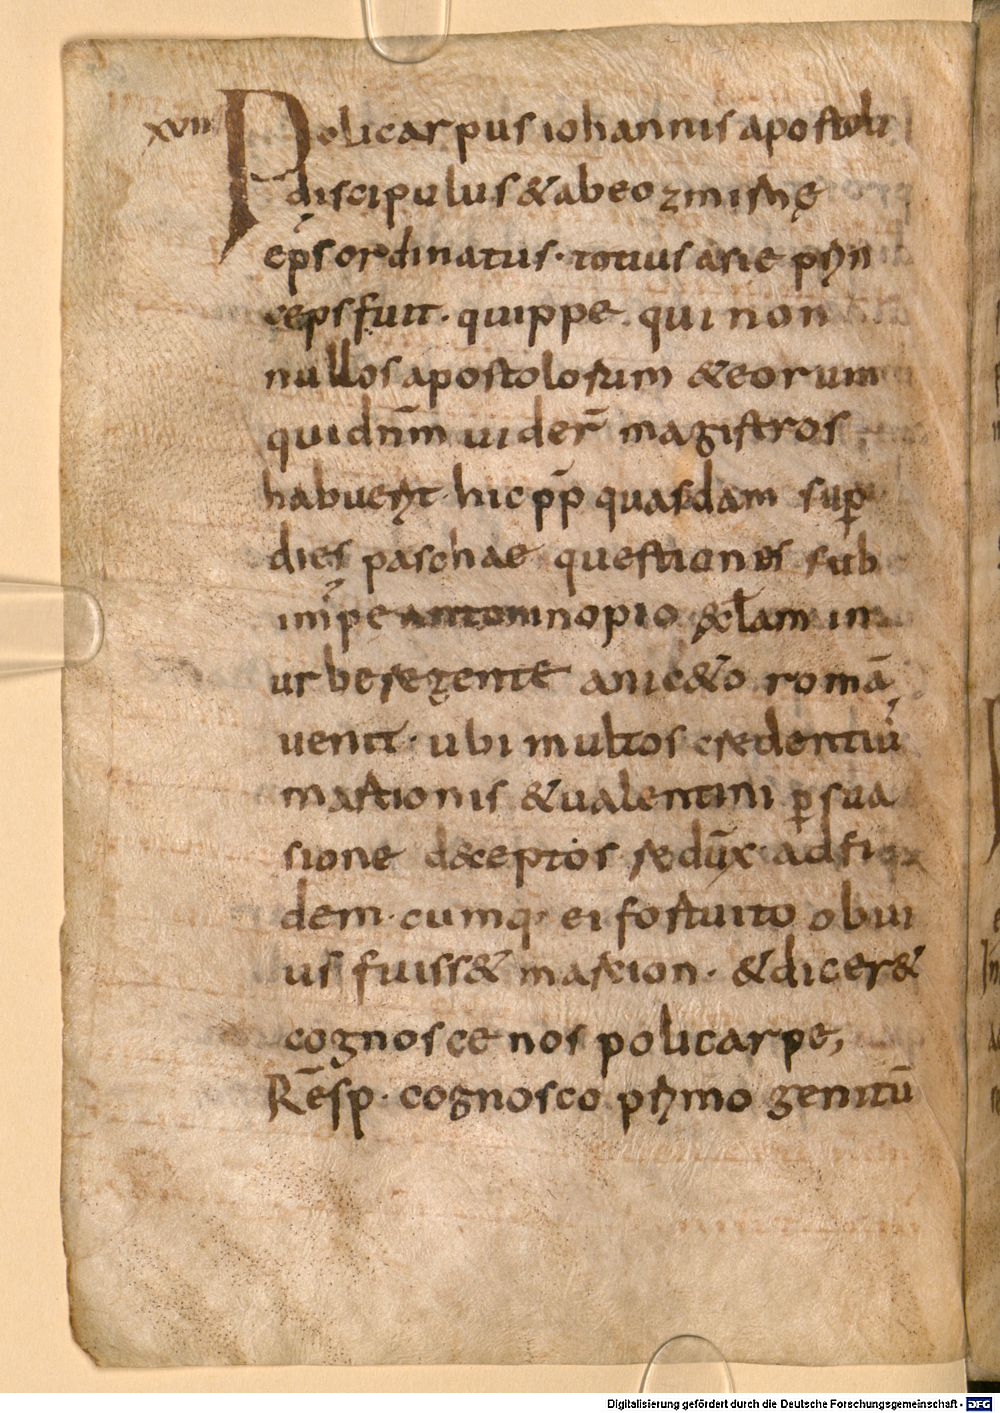 xvii Policarpus iohannis apostoli
discipulus & ab eo zmirnę
ep̄s ordinatus · totius asie prin
ceps fuit · quippe qui non
nullos apostolorum & eorum
qui dn̄m uider̄ magistros
habuerit · hic pp̄ quasdam sup̄
dies paschae questiones sub
imp̄e antoninopio & lam in
urbe regente anic&o romā
uenit · ubi multos credentiū
martionis & ualentini p̱sua
sione deceptos redūx · ad fi
dem · cumq· ei fortuito obui
us fuiss& marcion · & dicer&
cognosce nos policarpe,
Rēsp · cognosco primo genitū
Digitalisierung gefördert durch die Deutsche Forschungsgemeinschaft - DFG